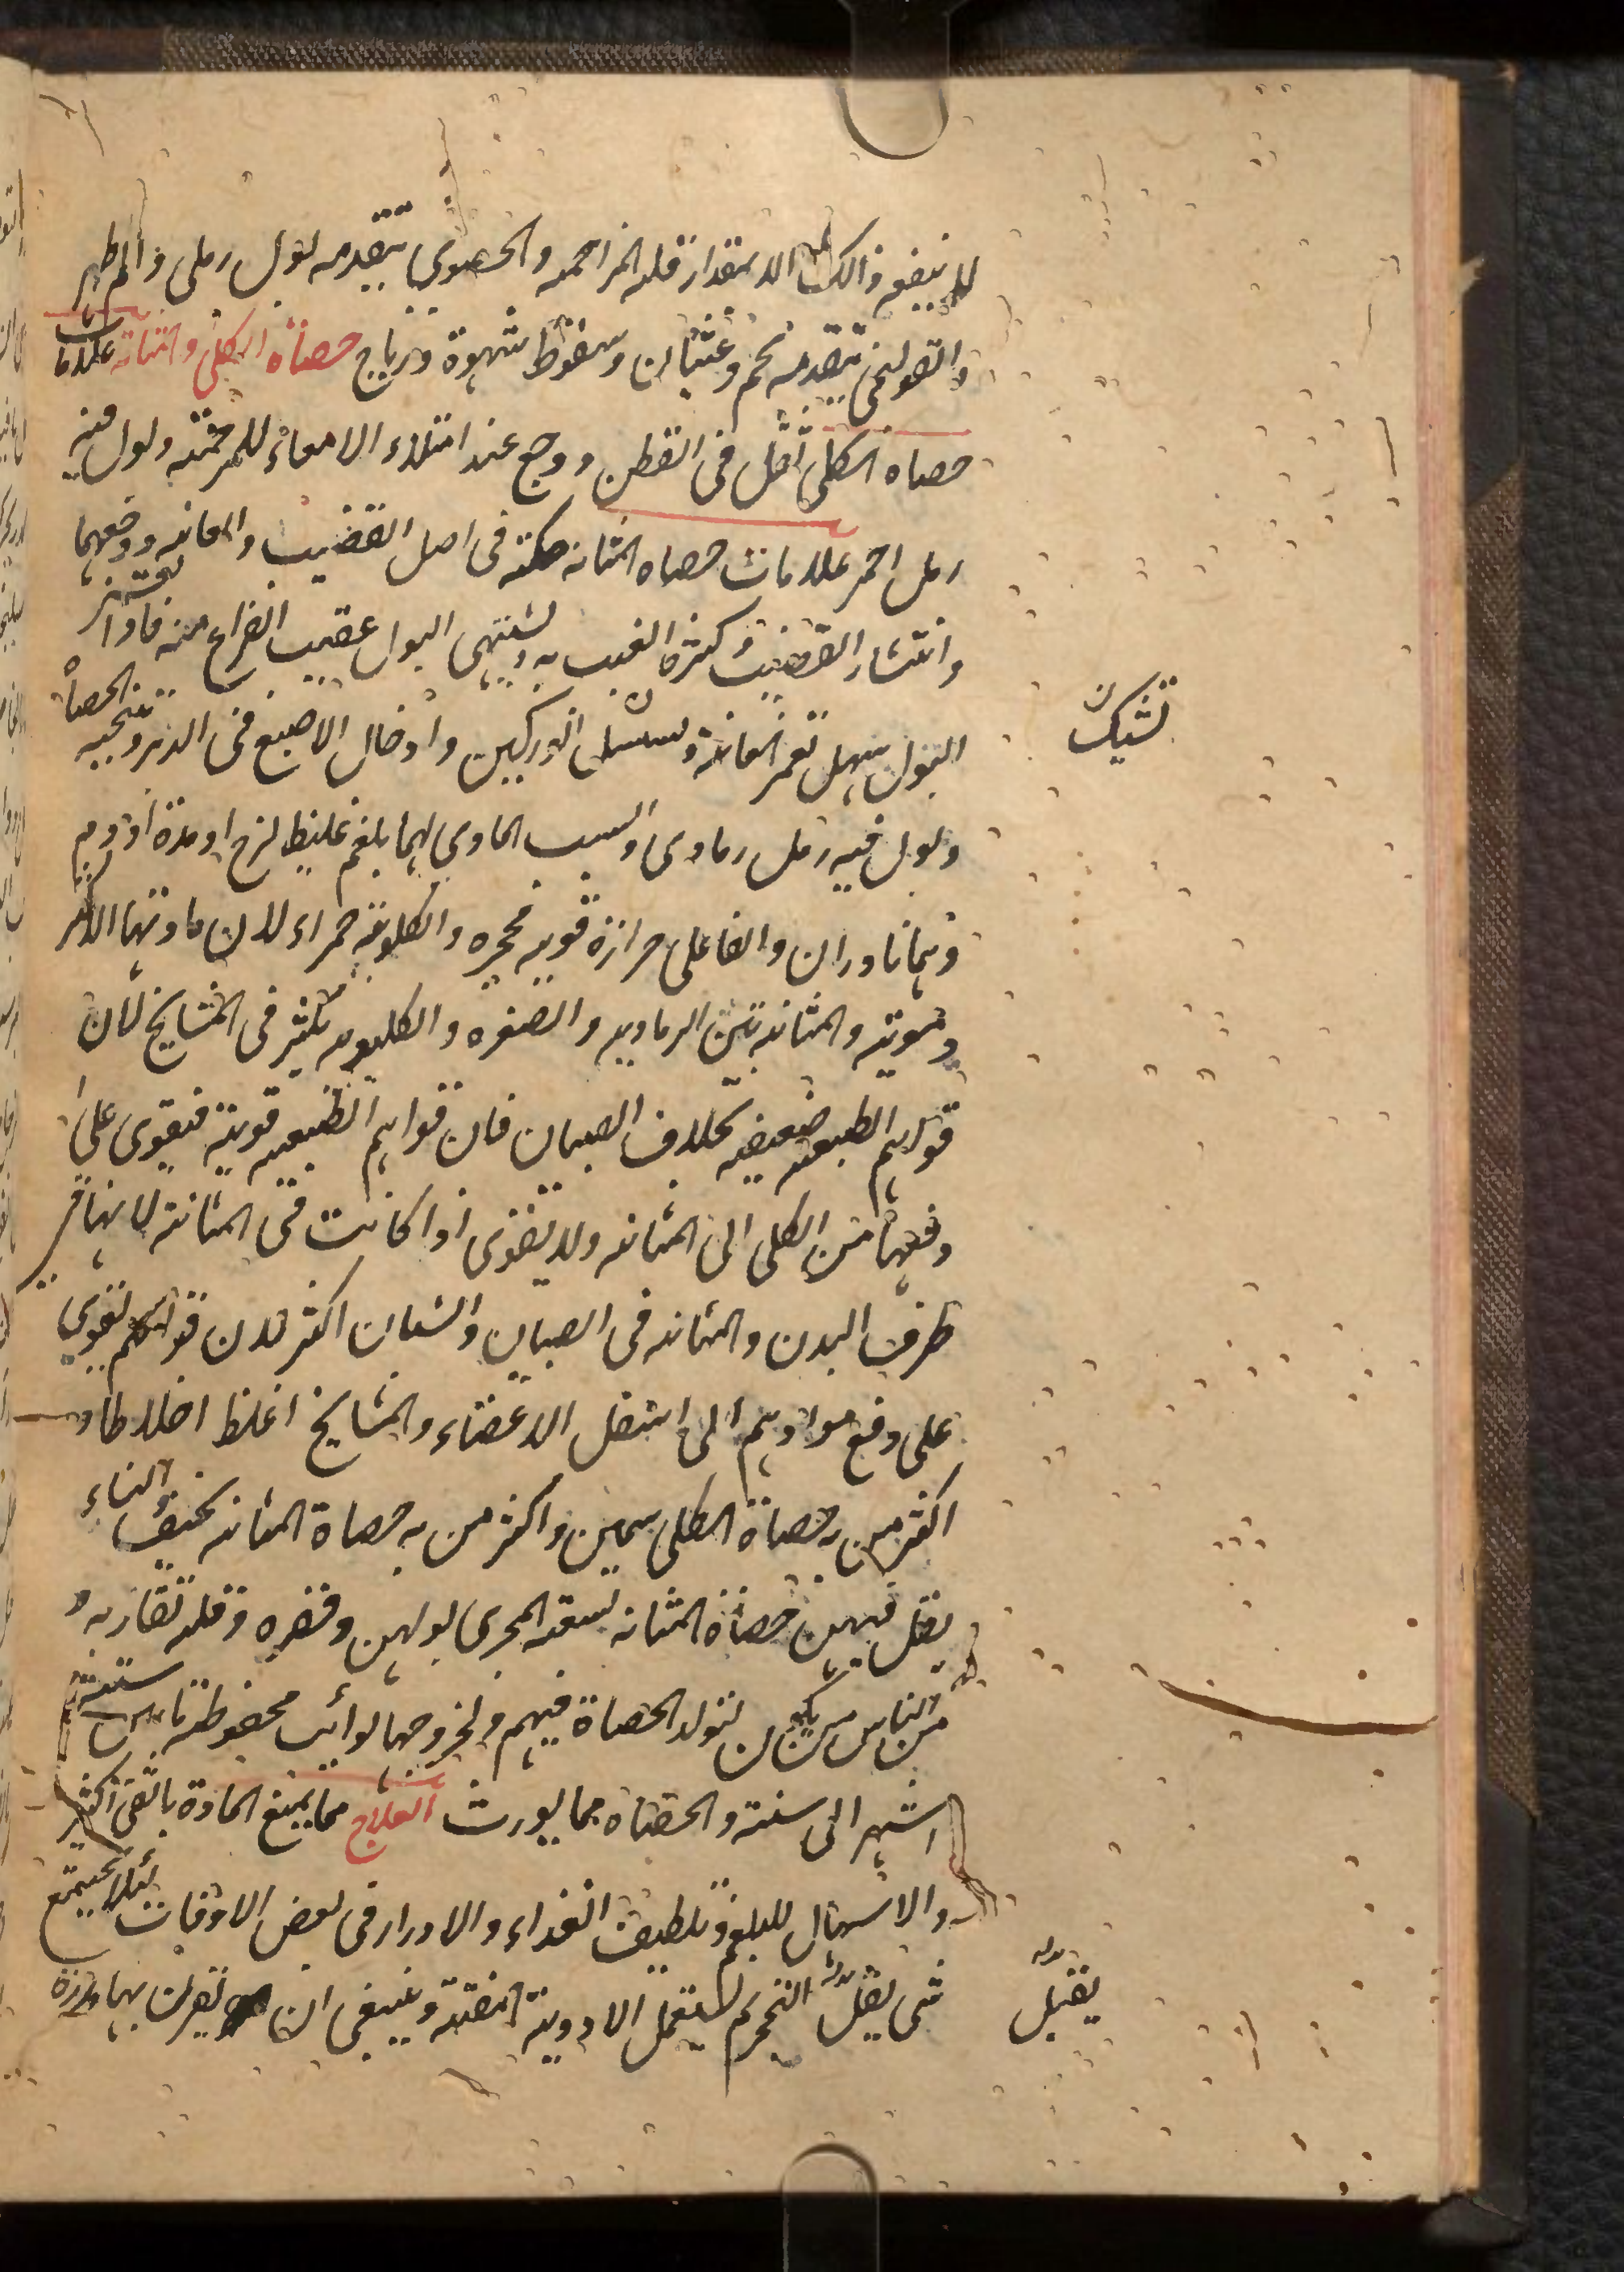 لا ينفع ذلك الا بمقدار قلة المزاحمة والحصوي يتقدمه بول رملي والم ظهر
والقولنجي يتقدمه تخم وغثيان وسقوط شهوة ورياح حصاة الكلى والمثانة علامات
حصاة الكلى ثقل في القطن ووجع عند امتلاء الامعاء للمزاحمة وبول فيه
رمل احمر علامات حصاه المثانه حكة في اصل القضيب والعانه ووجعهما
وانتشار القضيب وكثرة العبث به ويشتهي البول عقيب الفراغ منه فاذا احتبس
البول سهل بغمز العانة وتشيل الوركين وادخال الاصبع في الدبر وتنحيه الحصاة
وبول فيه رمل رمادي والسبب المادي لهما بلغم غليظ لزج او مدة او دم
وهما نادران والفاعلي حرارة قويه محجره والكلوية حمراء لان مادتها الاكثر
دموية والمثانية بين الرماديه والصفره والكليويه تكثر في المشايخ لان
قواهم الطبيعيه ضعيفه بخلاف الصبيان فان قواهم الطبيعيه قوية فيقوى على
دفعها من الكلى الى المثانه ولا يقوى اذا كانت في المثانة لانها في
طرف البدن والمثانه في الصبيان والشبان اكثر لان قواهم تقوى
على دفع موادهم الى اسفل الاعضاء والمشايخ اغلظ اخلاطا و
اكثر من به حصاة الكلى سمين واكثر من به حصاة المثانه نحيف والنساء
يقل فيهن حصاة المثانه لسعة المجرى بولهن وقصره وقلة تعاريجه و
من الناس من يكون لتولد الحصاة فيهم ولخروجها نوائب محفوظة ما بين ستة
اشهر الى سنة والحصاه مما يورث العلاج مما يمنع المادة بالقئ الكثير
والاسهال للبلغم وتلطيف الغذاء والادرار في بعض الاوقات لئلا يجتمع
شي يقبل التحجر ثم يستعمل الادوية المفتتة وينبغي ان يقرن بها مدرة
تشيل ن
يقبل بدله